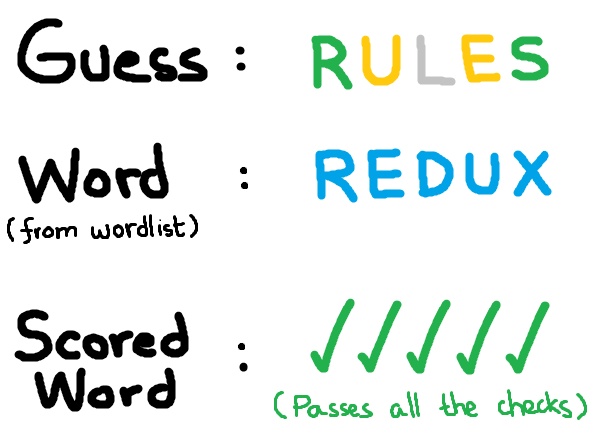 Guess : RULES
Word : REDUX
(from wordlist)
Scored : ✓✓✓✓✓
Word (Passes all the checks)